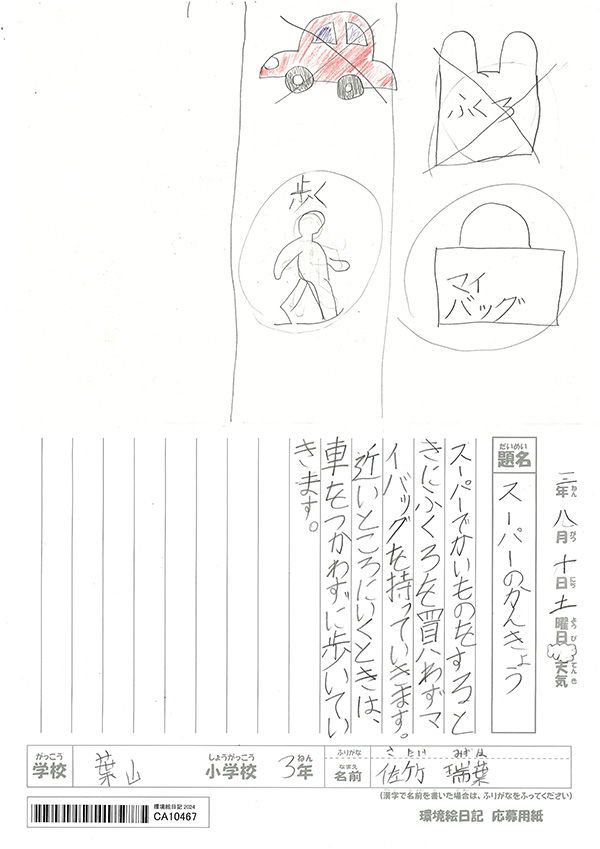 ふくろ
歩く
マイ
バッグ
三年八月十日土曜日天気
ねん
がつ
にち
よう び
てん き
だいめい
題名
スーパーのかんきょう
スーパーでかいものをすると
きにふくろを買わわずマ
イバッグを持っていきます。
近いところにいくときは、
車をつかわずに歩いてい
きます。
がっこう
学校
葉山
しょうがっこう
小学校
3年
ねん
ふりがな
さたけ みずは
なまえ
名前
佐竹 瑞葉
(漢字で名前を書いた場合は、ふりがなをふってください)
環境絵日記2024
CA10467
環境絵日記 応募用紙